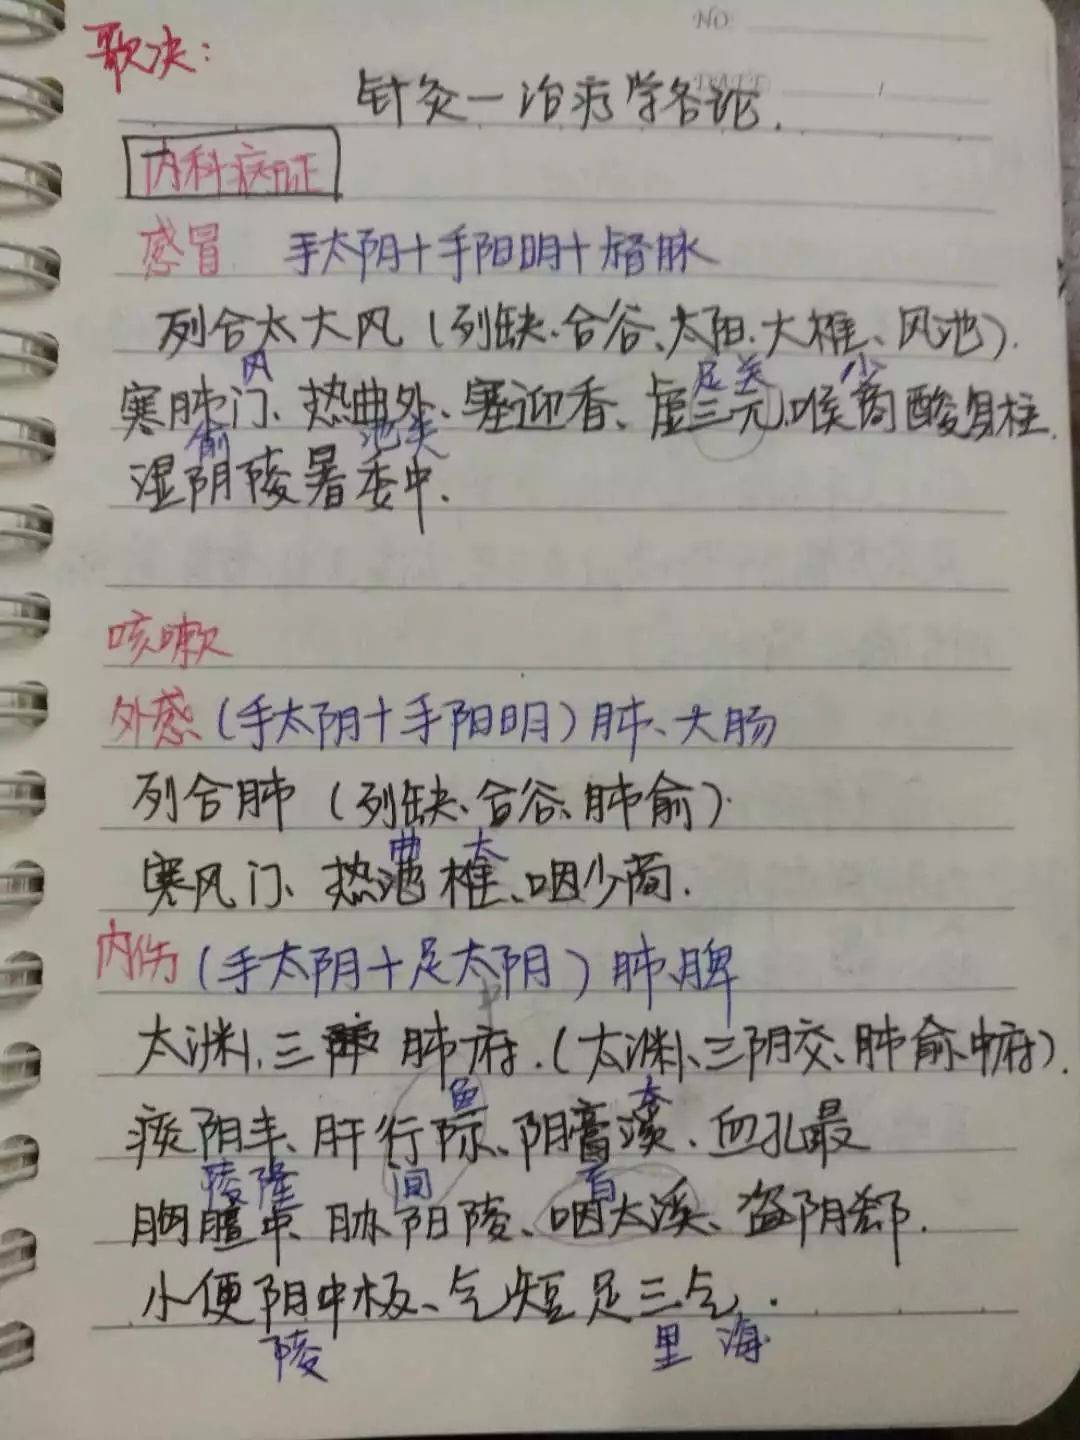 NO
歌决:
针灸一治疗学各论.
内科病证
感冒 手太阴+手阳明+督脉
列合太大风(列缺、合谷、太阳、大椎、风池).
风 足 关 少
寒肺门、热曲外、塞迎香、虚三元、喉商酸身柱.
俞 池 关
湿阴陵暑委中.
咳嗽
外感(手太阴+手阳明)肺、大肠
列合肺(列缺、合谷、肺俞).
曲 大
寒风门、热池椎、咽少商.
内伤(手太阴+足太阴)肺、脾
中
太渊、三 肺府.(太渊、三阴交、肺俞、中府).
鱼 太
痰阴丰、肝行际、阴膏溪、血孔最
陵 隆 间 肓
胸膻中、胁阳陵、咽太溪、盗阴郄.
小便阴中极、气短足三气.
陵 里 海